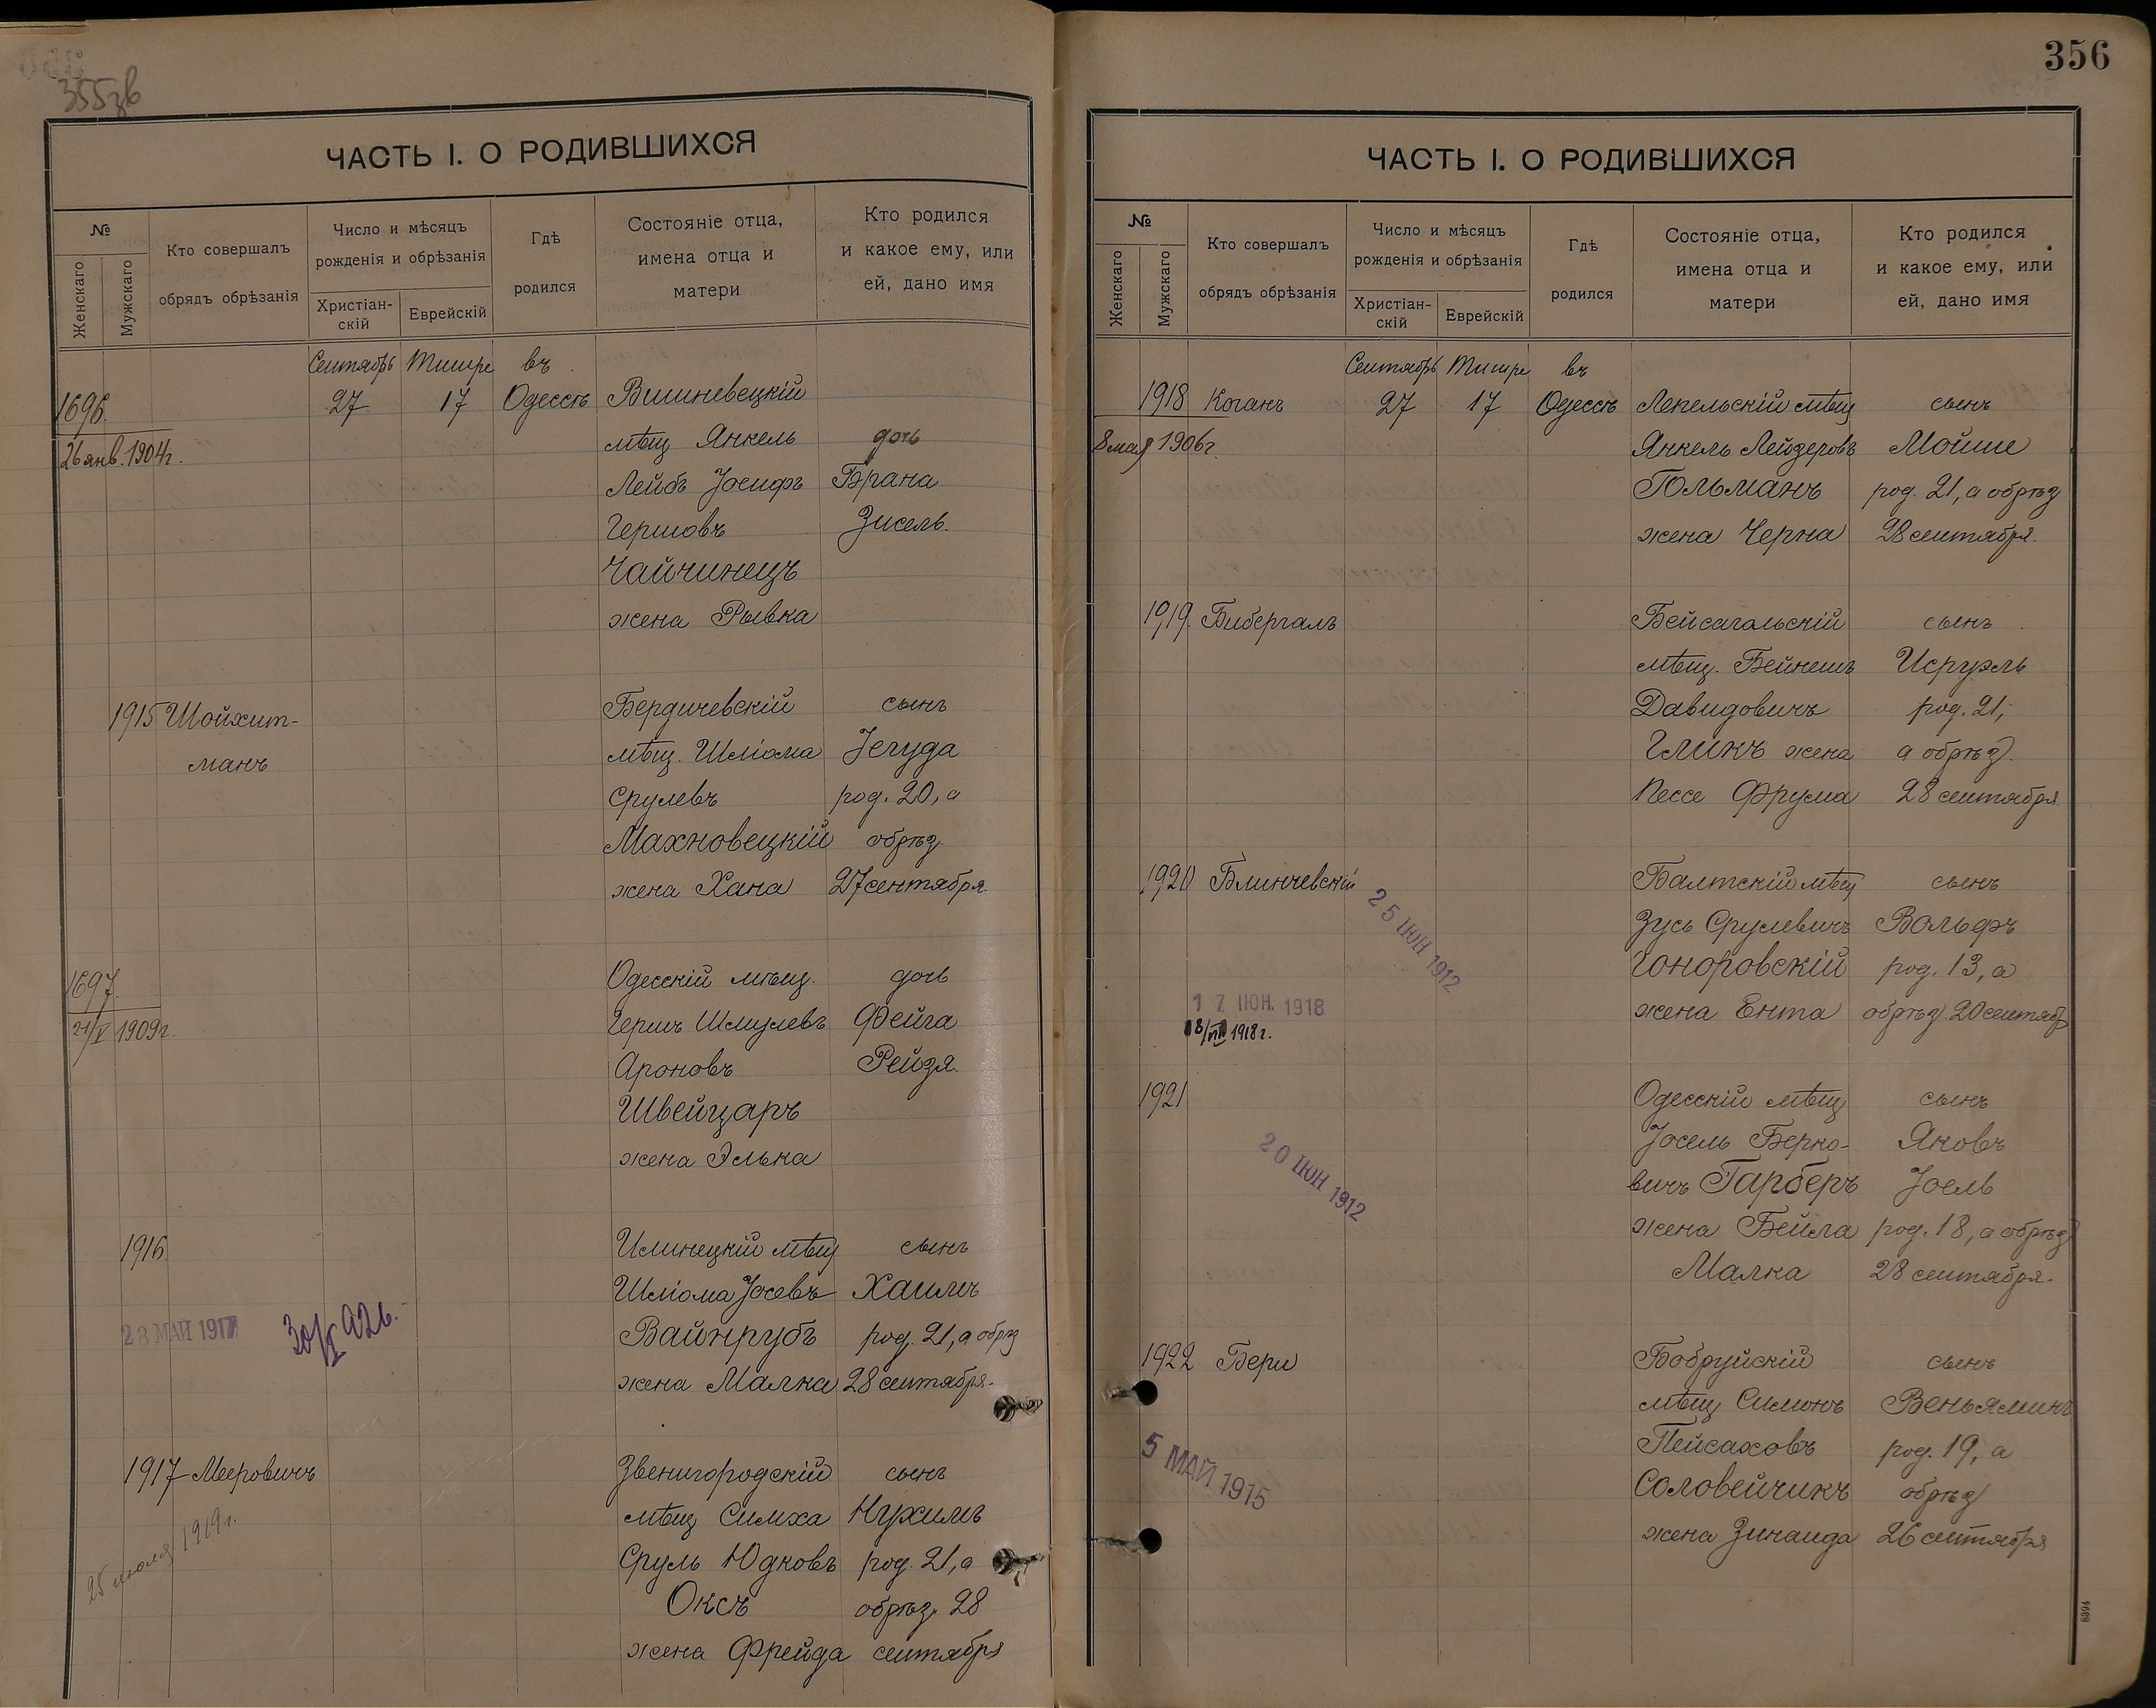 355зв
ЧАСТЬ I. О РОДИВШИХСЯ
№
Женскаго
Мужскаго
Кто совершалъ
обрядъ обрѣзанія
Число и мѣсяцъ
рожденія и обрѣзанія
Христіан-
скій
Еврейскій
Гдѣ
родился
Состояніе отца,
имена отца и
матери
Кто родился
и какое ему, или
ей, дано имя
Сентябрь Тишре въ
1696. 27 17 Одессѣ Вишневецкій
26 янв. 1904г. мѣщ Янкель дочь
Лейбъ Іосифъ Брана
Гершовъ Зисель.
Чайчинецъ
жена Рывка
1915 Шойхит- Бердичевскій сынъ
манъ мѣщ. Шліома Іегуда
Срулевъ род. 20, а
Махновецкій обрѣз.
жена Хана 27 сентября.
1697. Одесскій мѣщ. дочь
21/V 1909г. Гершъ Шмулевъ Фейга
Ароновъ Рейзя.
Швейцаръ
жена Элька
1916 Илинецкій мѣщ сынъ
Шліома Іосевъ Хаимъ
28 МАЙ 1917 30/X 926. Вайнрубъ род. 21, а обрѣз
жена Малка 28 сентября.
1917 Мееровичъ Звенигородскій сынъ
мѣщ Симха Нухимъ
25 июля 1919г. Сруль Юдковъ род. 21, а
Оксъ обрѣз. 28
жена Фрейда сентября
356
ЧАСТЬ I. О РОДИВШИХСЯ
№
Женскаго
Мужскаго
Кто совершалъ
обрядъ обрѣзанія
Число и мѣсяцъ
рожденія и обрѣзанія
Христіан-
скій
Еврейскій
Гдѣ
родился
Состояніе отца,
имена отца и
матери
Кто родился
и какое ему, или
ей, дано имя
Сентябрь Тишре въ
1918 Коганъ 27 17 Одессѣ Лепельскій мѣщ сынъ
8 мая 1906г. Янкель Лейзеровъ Мойше
Гольманъ род. 21, а обрѣз
жена Черна 28 сентября.
1919. Бибергалъ Бейсагольскій сынъ
мѣщ. Бейнешъ Исруэль
Давидовичъ род. 21,
Гликъ жена а обрѣз.
Пессе Фрума 28 сентября.
1920 Блинчевскій Балтскій мѣщ сынъ
25 ІЮН 1912 Зусь Срулевичъ Вольфъ
Гоноровскій род. 13, а
17 ІЮН. 1918 жена Ента обрѣз 20 сентябр
18/VII 1918г.
1921 Одесскій мѣщ сынъ
20 ІЮН 1912 Іосель Берко- Яковъ
вичъ Гарберъ Іоель
жена Бейла род. 18, а обрѣз
Малка 28 сентября.
1922 Бери Бобруйскій сынъ
мѣщ Симонъ Веньяминъ
5 МАЙ 1915 Пейсаховъ род. 19, а
Соловейчикъ обрѣз
жена Зинаида 26 сентября
8394